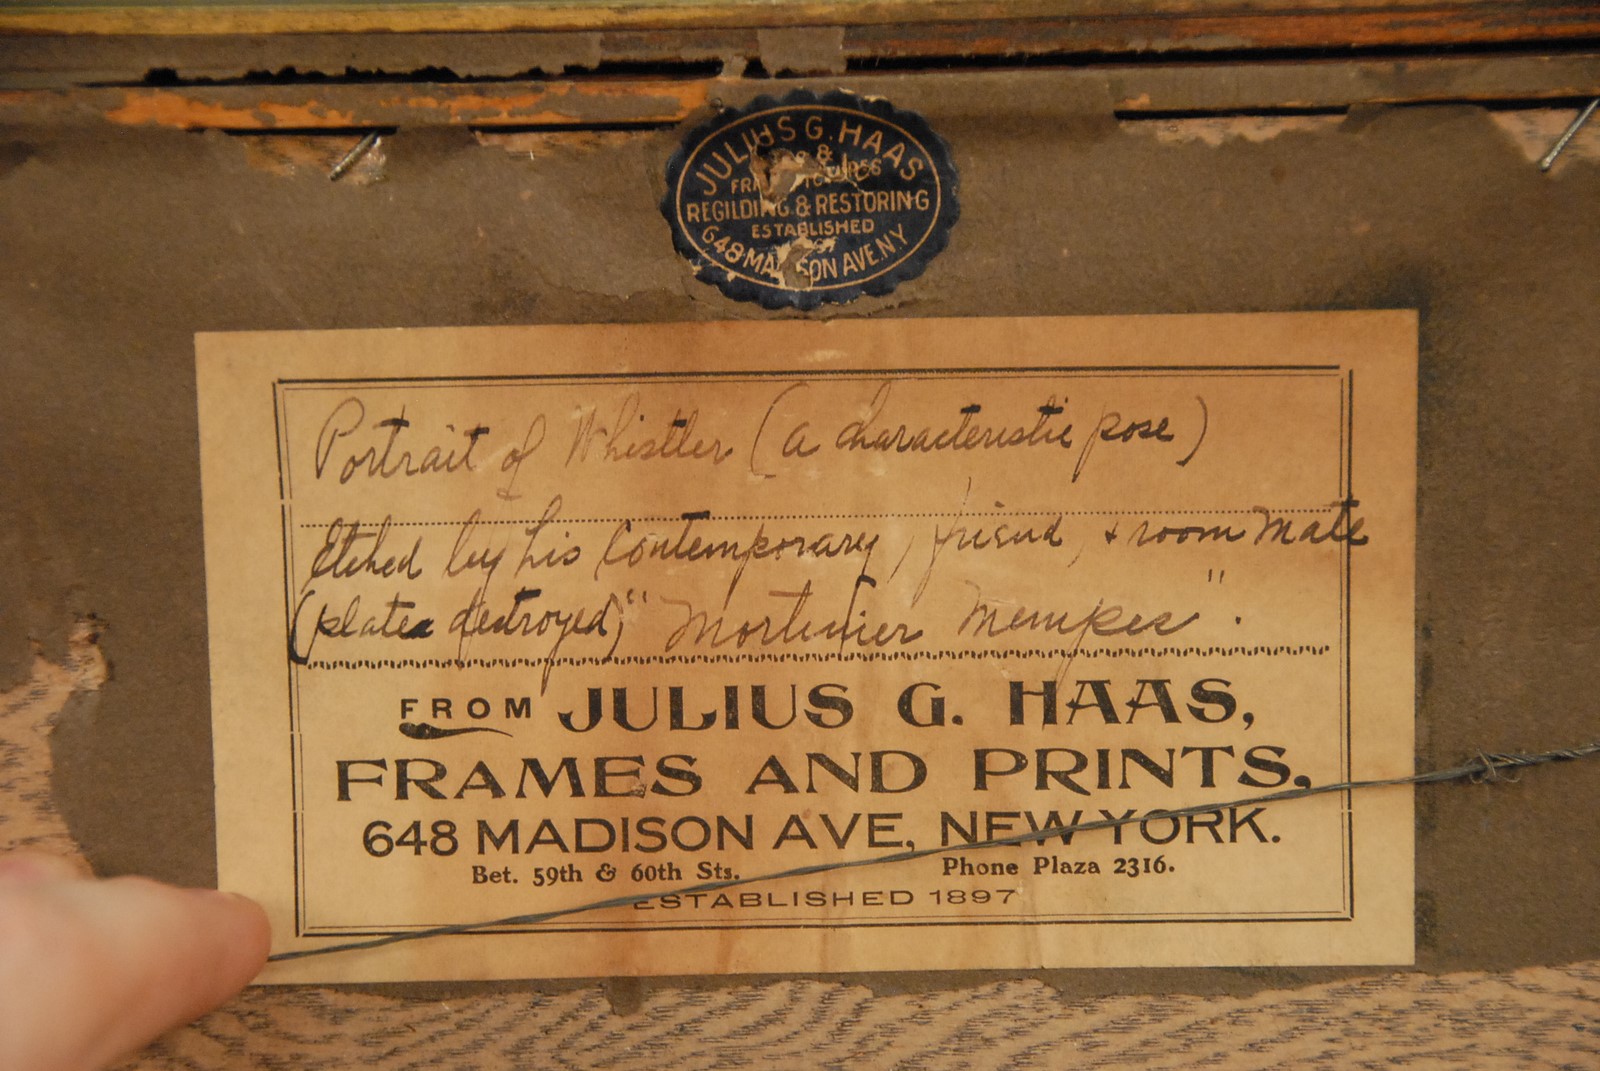 JULIUS G. HAAS
&
REGILDING & RESTORING
ESTABLISHED
648 MADISON AVE. N.Y.
Portrait of Whistler (a characteristic pose)
Etched by his Contemporary, friend, & room mate
(plates destroyed) "Mortimer Menpes".
FROM JULIUS G. HAAS,
FRAMES AND PRINTS,
648 MADISON AVE, NEW YORK.
Bet. 59th & 60th Sts. Phone Plaza 2316.
ESTABLISHED 1897